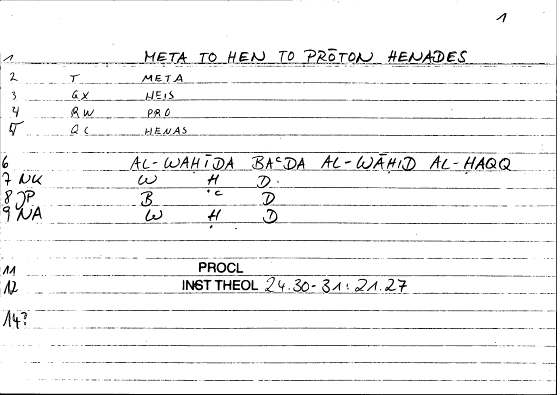 1
1 META TO HEN TO PRŌTON HENADES
2 T META
3 GX HEIS
4 RW PRO
5 QC HENAS
6 AL-WAḤĪDA BAᶜDA AL-WĀḤID AL-ḤAQQ
7 NK W Ḥ D
8 JP B ᶜ D
9 NA W Ḥ D
11 PROCL
12 INST THEOL 24.30-31: 21.27
14?